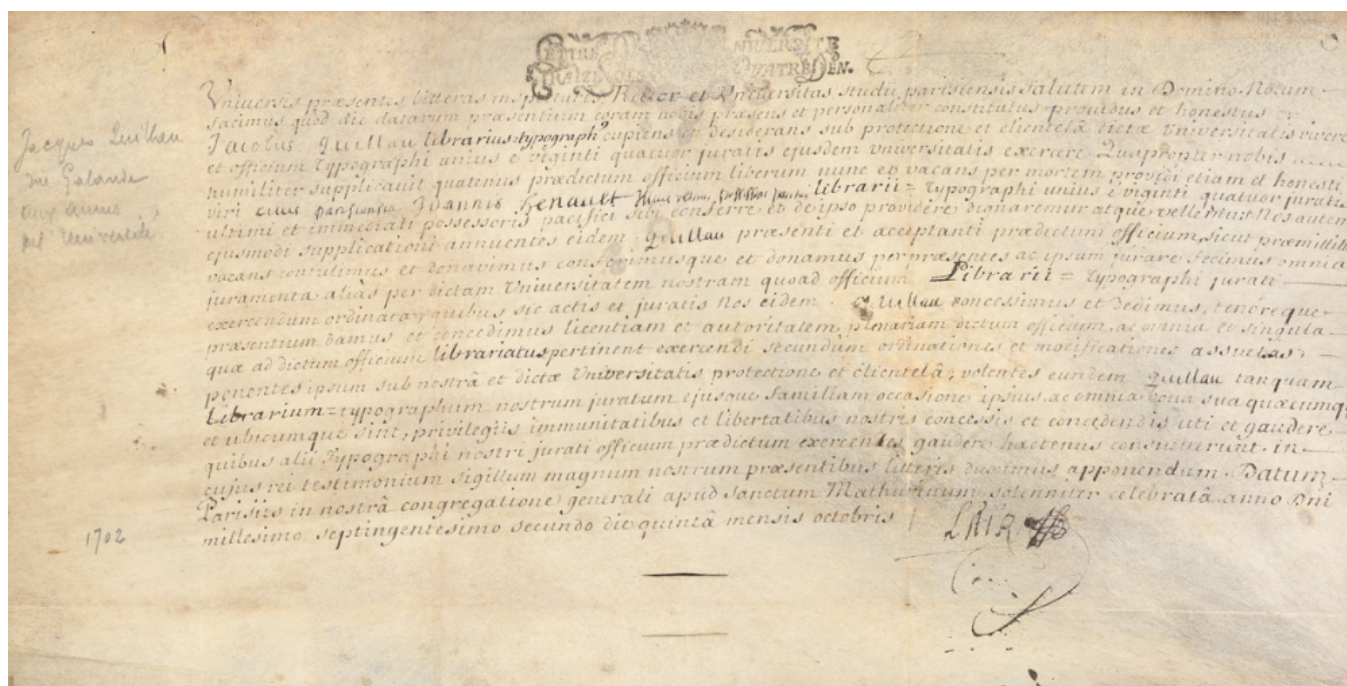 LETTRE DE UNIVERSITÉ
TREIZE SOLS QUATRE DEN.
Universis præsentes litteras inspecturis, Rector et Universitas studii parisiensis salutem in Domino. Notum
facimus quod die datarum præsentium coram nobis præsens et personaliter constitutus providus et honestus
Jacobus Quillau librarius=typographus cupiens et desiderans sub protectione et clientelâ dictæ Universitatis vivere
et officium typographi unius e viginti quatuor juratis ejusdem universitatis exercere. Quapropter nobis
humiliter supplicavit quatenus prædictum officium liberum nunc et vacans per mortem providi etiam et honesti
viri civis parisiensis Joannis Henault librarii=typographi unius è viginti quatuor juratis
ultimi et immediati possessoris pacifici sibi conferre et de ipso providere dignaremur atque vellemus. Nos autem
ejusmodi supplicationi annuentes eidem Quillau præsenti et acceptanti prædictum officium, sicut præmittitur
vacans contulimus et donavimus conferimusque et donamus per præsentes ac ipsum jurare fecimus omnia
juramenta aliàs per dictam Universitatem nostram quoad officium Librarii=typographi jurati
exercendum ordinata; quibus sic actis et juratis Nos eidem Quillau concessimus et dedimus, tenore que
præsentium damus et concedimus licentiam et autoritatem plenariam dictum officium, ac omnia et singula
quæ ad dictum officium librariatus pertinent exercendi secundum ordinationes et modificationes assuetas
ponentes ipsum sub nostrâ et dictæ Universitatis protectione et clientelâ; volentes eundem Quillau tanquam
Librarium=typographum nostrum juratum ejusque familiam occasione ipsius, ac omnia bona sua quæcumq
et ubicumque sint, privilegiis immunitatibus et libertatibus nostris concessis et concedendis uti et gaudere
quibus alii Typographi nostri jurati officium prædictum exercentes gaudere hactenus consueverunt. in
cujus rei testimonium sigillum magnum nostrum præsentibus litteris duximus apponendum Datum
Parisiis in nostrâ congregatione generali apud sanctum Mathurinum solenniter celebratâ anno Dni
millesimo septingentesimo secundo die quintâ mensis octobris
LAIR
Jacques Quillau
rue Galande
aux armes
de l'Université
1702